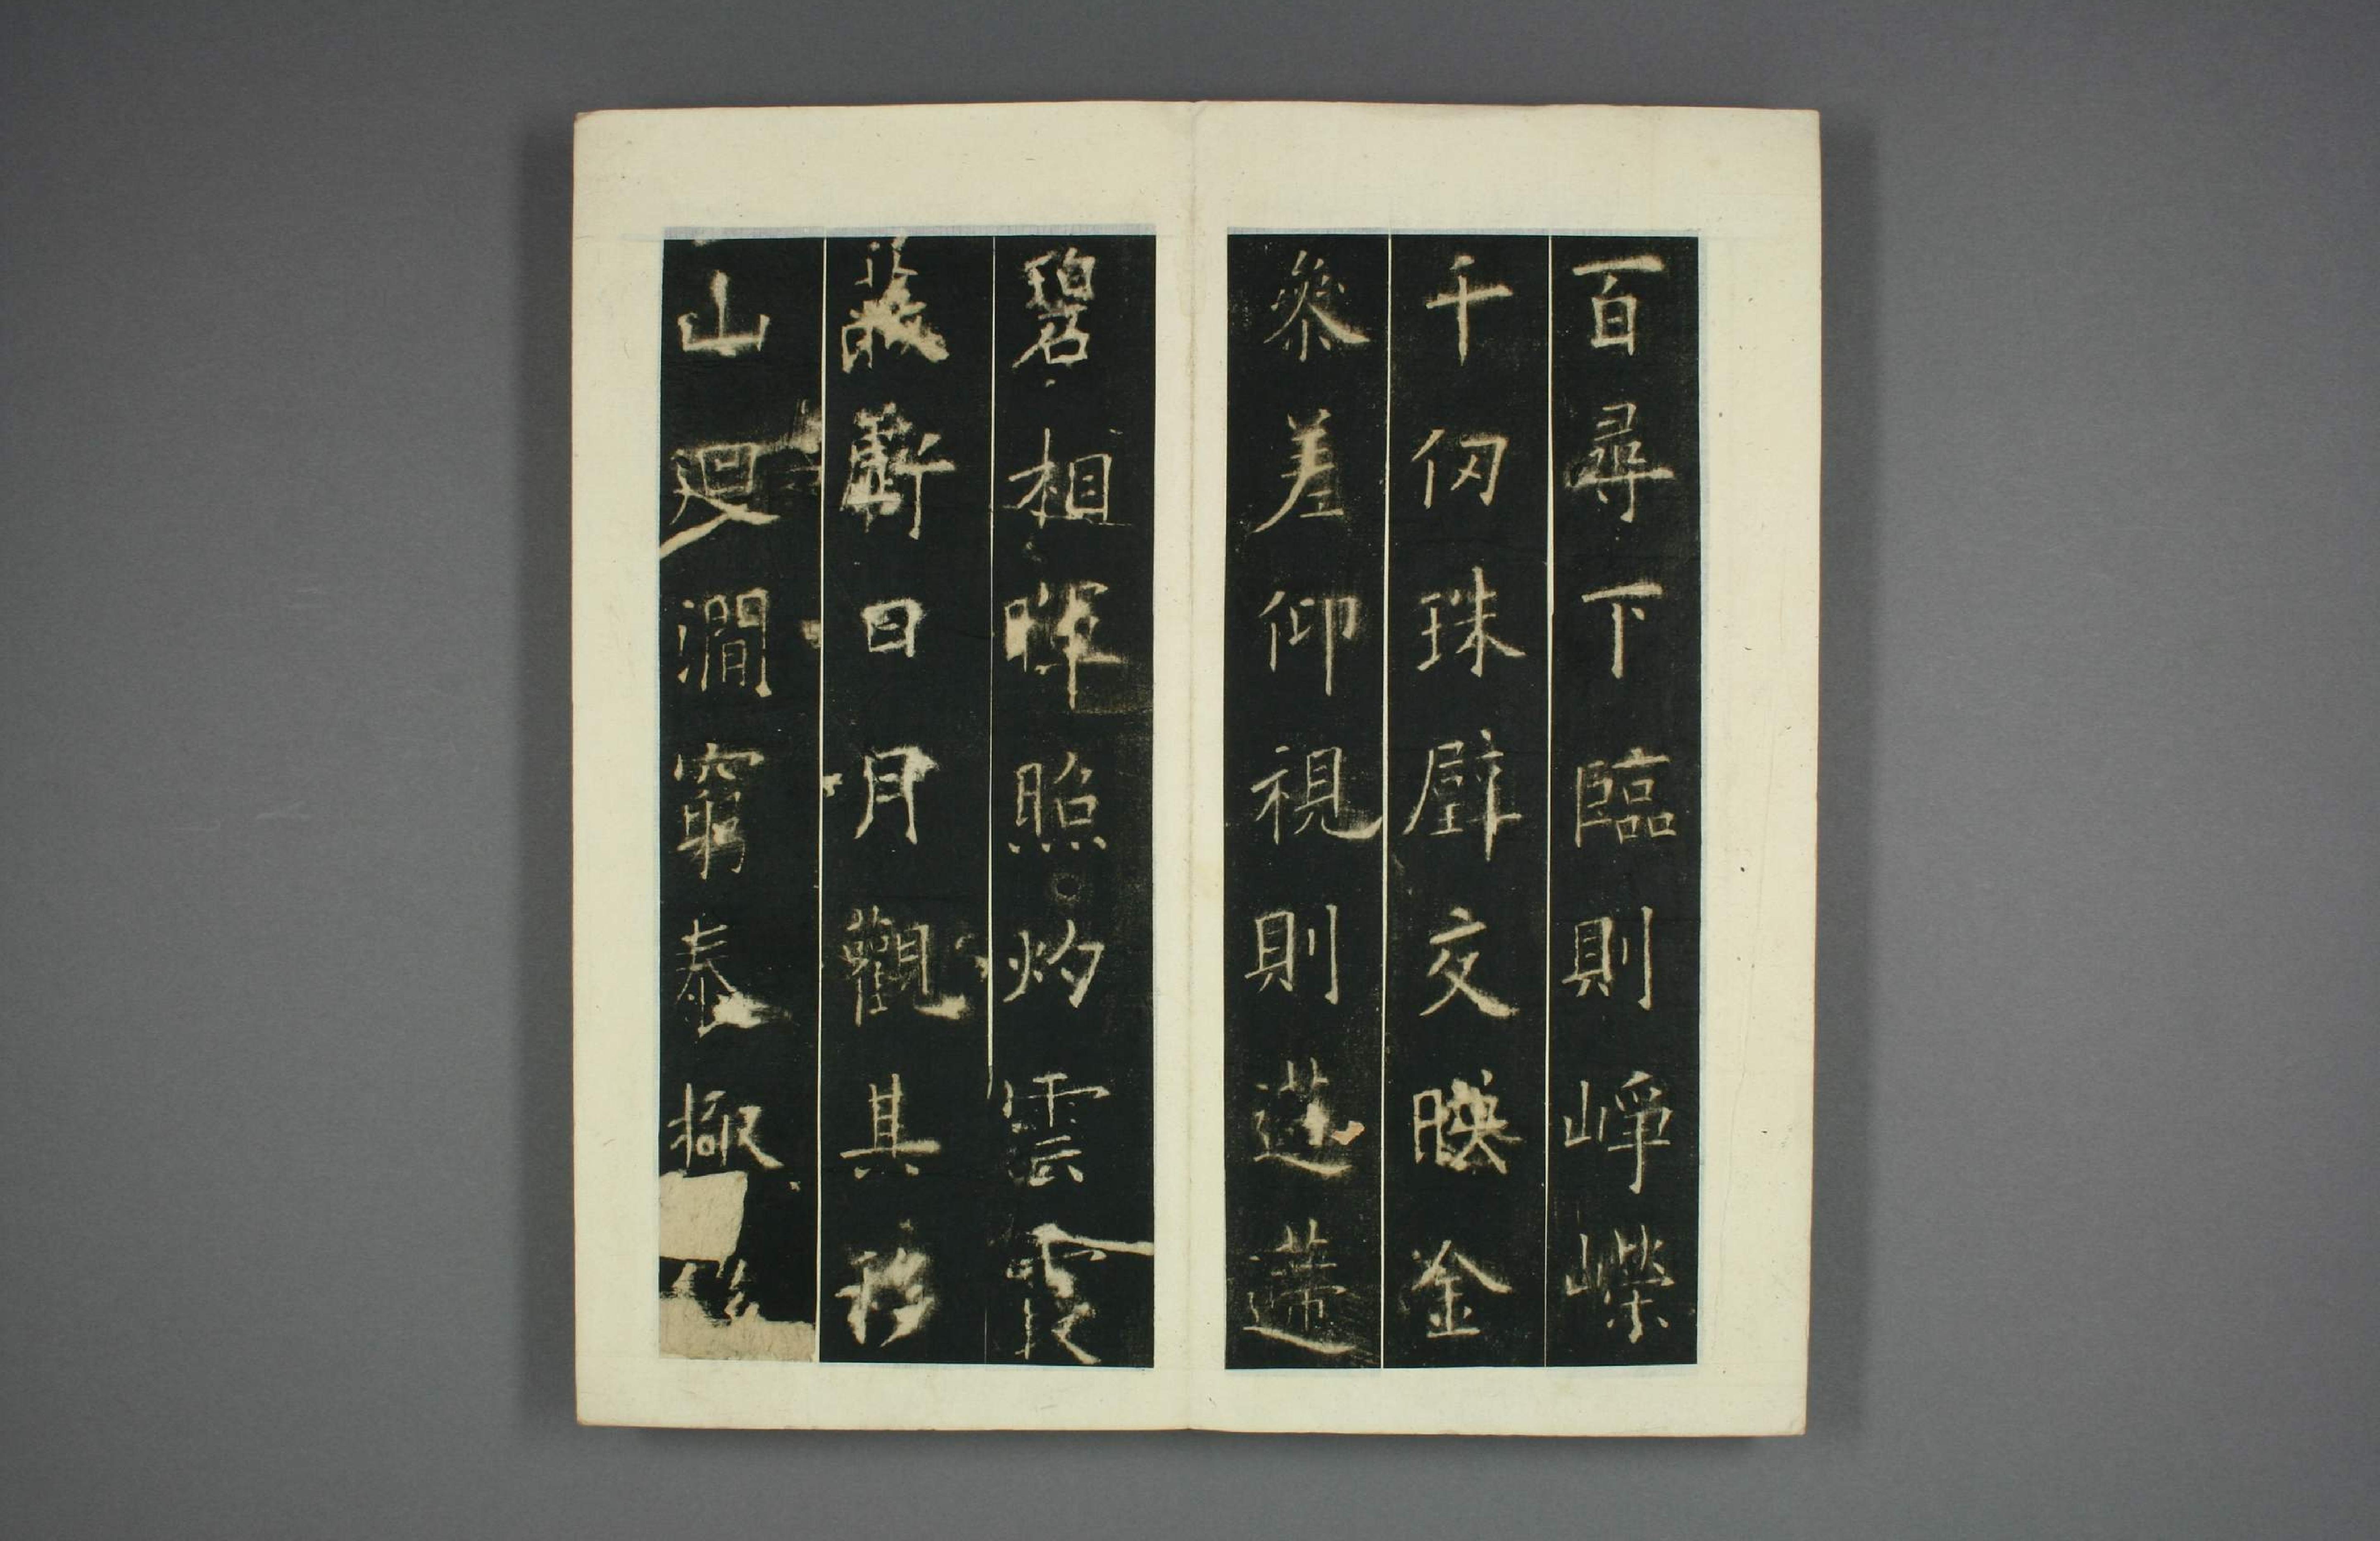 百尋下臨則崢嶸
千仞珠璧交映金
參差仰視則迢遰
碧相暉照灼雲霞
蔽虧日月觀其移
山迴澗窮泰極侈